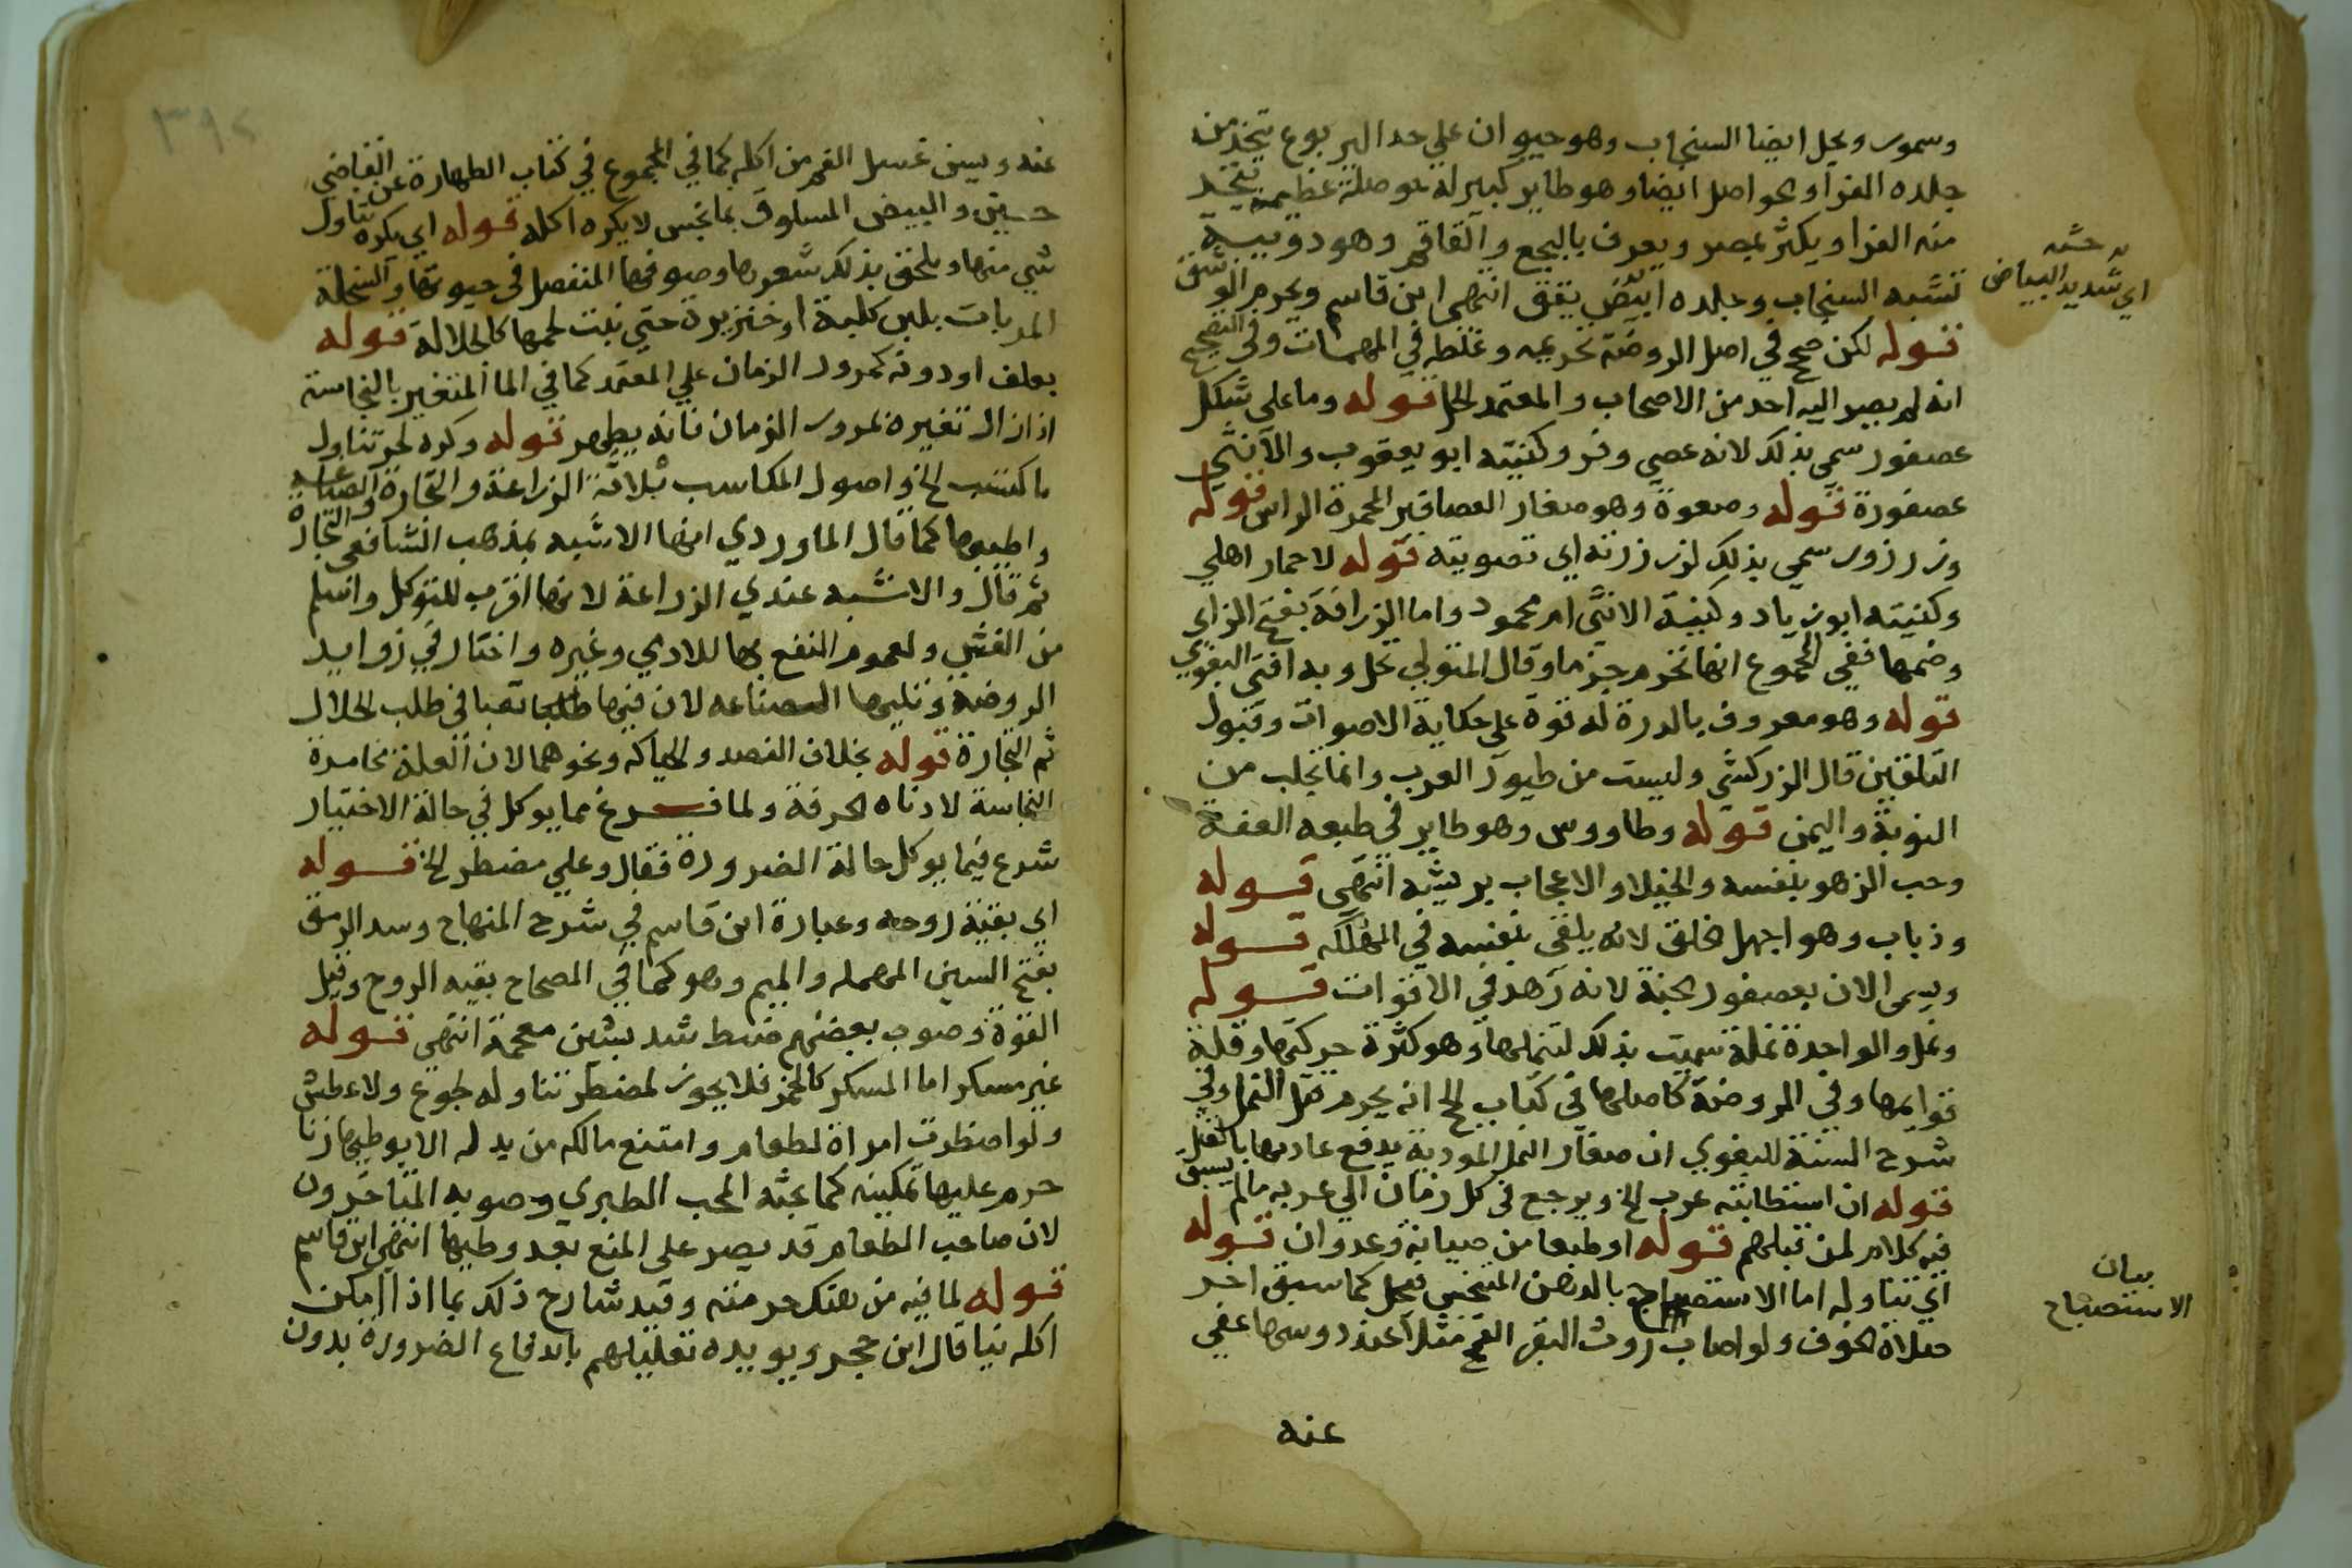 وسمور ويحل ايضا السنجاب وهو حيوان علي حد اليربوع يتخذ من
جلده الفرا والحواصل ايضا وهو طاير كبير له حوصلة عظيمة يتخذ
منه الفرا ويكثر بمصر ويعرف بالبجع والقاقم وهو دويبة
تشبه السنجاب وجلده ابيض يقق انتهى ابن قاسم ويحرم الوشق
اي شديد البياض
قوله لكن صحح في اصل الروضة تحريمه وغلطه في المهمات وفي التصحيح
انه لم يصر اليه احد من الاصحاب والمعتمد الحل قوله وما على شكل
عصفور سمي بذلك لانه عصي وفر وكنيته ابو يعقوب والانثي
عصفورة قوله وصعوة وهو صغار العصافير المحمرة الراس قوله
وزرزور سمي بذلك لزرزرته اي تصويته قوله لا حمار اهلي
وكنيته ابو زياد وكنية الانثى ام محمود واما الزرافة بفتح الزاي
وضمها ففي المجموع انها تحرم جزما وقال المتولي تحل وبه افتى البغوي
قوله وهو معروف بالدرة له قوة على حكاية الاصوات وقبول
التلقين قال الزركشي وليست من طيور العرب وانما تجلب من
النوبة واليمن قوله وطاووس وهو طاير في طبعه العفة
وحب الزهو بنفسه والخيلا والاعجاب بريشه انتهى قوله
وذباب وهو اجهل الخلق لانه يلقى بنفسه في المهلكه قوله
ويسمى الان بعصفور الجنة لانه زهد في الاقوات قوله
ونمل والواحدة نملة سميت بذلك لتنملها وهو كثرة حركتها وقلة
قوايمها وفي الروضة كاصلها في كتاب الحج انه يحرم قتل النمل وفي
شرح السنة للبغوي ان صغار النمل الموذية يدفع عاديها بالقتل
قوله ان استطابته عرب الخ ويرجع في كل زمان الي عربه مالم يسبق
فيه كلام لمن قبلهم قوله او طبعا من حيات وعدوان قوله
اي تناوله اما الاستصباح بالدهن المتنجس فيحل كما سبق اخر
بيان
الاستصباح
صلاة الخوف ولو اصاب روث البقر القمح مثلا عند دوسها عفي
عنه
عنه ويسن غسل الفم من اكله كما في المجموع في كتاب الطهارة عن القاضي
حسين والبيض المسلوق بما نجس لا يكره اكله قوله اي يكره تناول
شي منها ويلحق بذلك شعورها وصوفها المنفصل في حيوتها والسخلة
المرباة بلبن كلبة او خنزيرة حتى نبت لحمها كالجلالة قوله
بعلف او دونه كمرور الزمان علي المعتمد كما في الما المتغير بالنجاسة
اذا زال تغيره بمرور الزمان فانه يطهر قوله وكره لحر تناول
ما كسب الخ واصول المكاسب ثلاثة الزراعة والتجارة والصناعه
واطيبها كما قال الماوردي انها الاشبه بمذهب الشافعي التجارة
ثم قال والاشبه عندي الزراعة لانها اقرب للتوكل واسلم
من الغش ولعموم النفع بها للادمي وغيره واختار في زوايد
الروضة وتليها الصناعه لان فيها تعبا في طلب الحلال
ثم التجارة قوله بخلاف الفصد والحياكه ونحوهما لان العلة مخامرة
النجاسة لا دناه الحرفة ولما فرغ مما يوكل في حالة الاختيار
شرع فيما يوكل حالة الضرورة فقال وعلي مضطر الخ قوله
اي بقية روحه وعبارة ابن قاسم في شرح المنهاج وسد الرمق
بفتح السين المهمله والميم وهو كما في المصحاح بقيه الروح وقيل
القوة وصوب بعضهم ضبط شد بشين معجمة انتهى قوله
غير مسكر اما المسكر كالخمر فلا يجوز لمضطر تناوله لجوع ولا عطش
ولو اضطرت امراة لطعام وامتنع مالكه من بدله الا بوطيها زنا
حرم عليها تمكينه كما بحثه المحب الطبري وصوبه المتاخرون
لان صاحب الطعام قد يصر على المنع بعد وطيها انتهى ابن قاسم
قوله لما فيه من هتك حرمته وقيد شارح ذلك بما اذا امكن
اكله نيا قال ابن حجر ويويده تعليلهم باندفاع الضرورة بدون